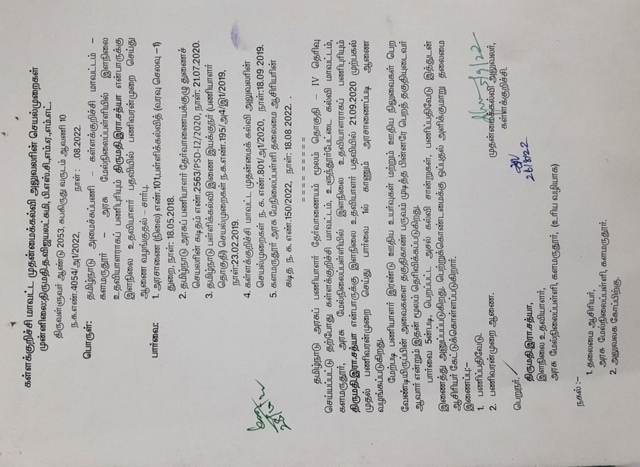 கள்ளக்குறிச்சி மாவட்ட முதன்மைக்கல்வி அலுவலரின் செயல்முறைகள்
முன்னிலை:திருமதி.த.விஜயலட்சுமி, பி.எஸ்சி,எம்.ஏ,எம்.எட்.
திருவள்ளுவர் ஆண்டு 2053, சுபகிருது வருடம் ஆவணி 10
ந.க.எண்.4054/அ1/2022, நாள் : .08.2022.
பொருள்: தமிழ்நாடு அமைச்சுப்பணி – கள்ளக்குறிச்சி மாவட்டம் –
களமருதூர் – அரசு மேல்நிலைப்பள்ளியில் இளநிலை
உதவியாளராகப் பணிபுரியும் திருமதி.இரா.சத்யா என்பாருக்கு
இளநிலை உதவியாளர் பதவியில் பணிவரன்முறை செய்து
ஆணை வழங்குதல் – சார்பு.
பார்வை: 1. அரசாணை (நிலை) எண்.101,பள்ளிக்கல்வித் (வரவு செலவு –1)
துறை, நாள்: 18.05.2018.
2. தமிழ்நாடு அரசுப் பணியாளர் தேர்வாணையக்குழு துணைச்
செயலரின் கடிதம் எண்.2563/PSD-D2/2020, நாள்: 21.07.2020.
3. தமிழ்நாடு பள்ளிக்கல்வி இணை இயக்குநர் (பணியாளர்
தொகுதி) செயல்முறைகள் ந.க.எண்.195/அ4/இ1/2019,
நாள்:23.02.2019.
4. கள்ளக்குறிச்சி மாவட்ட முதன்மைக் கல்வி அலுவலரின்
செயல்முறைகள் ந. க. எண்.801/அ1/2020, நாள்:18.09.2019.
5. களமருதூர் அரசு மேநிலைப்பள்ளி தலைமை ஆசிரியரின்
கடித ந. க.எண்.150/2022, நாள்: 18.08.2022. .
= = = = = = = =
தமிழ்நாடு அரசுப் பணியாளர் தேர்வாணையம் மூலம் தொகுதி – IV தெரிவு
செய்யப்பட்டு தற்போது கள்ளக்குறிச்சி மாவட்டம், உளுந்தூர்பேட்டை கல்வி மாவட்டம்,
களமருதூர், அரசு மேல்நிலைப்பள்ளியில் இளநிலை உதவியாளராகப் பணிபுரியும்
திருமதி.இரா.சத்யா என்பாருக்கு இளநிலை உதவியாளர் பதவியில் 21.09.2020 முற்பகல்
முதல் பணிவரன்முறை செய்து பார்வை 1ல் காணும் அரசாணைப்படி ஆணை
வழங்கப்படுகிறது.
மேற்படி பணியாளர் இரண்டு ஊதிய உயர்வுகள் மற்றும் ஊதிய நிலுவைகள் பெற
வேண்டியிருப்பின் அவைகளை தகுதிகாண் பருவம் முடித்த பின்னரே பெறத் தகுதியுடையவர்
ஆவார் என்றும் இதன் மூலம் தெரிவிக்கப்படுகிறது.
பார்வை 5ன்படி பெறப்பட்ட அசல் கல்வி சான்றுகள், பணிப்பதிவேடு இத்துடன்
இணைத்து அனுப்பப்படுகிறது. பெற்றுக்கொண்டமைக்கு ஒப்புதல் அளிக்குமாறு தலைமை
ஆசிரியர் கேட்டுக்கொள்ளப்படுகிறார்.
இணைப்பு:-
1. பணிப்பதிவேடு.
2. பணிவரன்முறை ஆணை.
முதன்மைக்கல்வி அலுவலர்,
கள்ளக்குறிச்சி.
பெறுநர்
திருமதி.இரா.சத்யா,
இளநிலை உதவியாளர்,
அரசு மேல்நிலைப்பள்ளி, களமருதூர், (உரிய வழியாக)
நகல் :-
1. தலைமை ஆசிரியர்,
அரசு மேல்நிலைப்பள்ளி, களமருதூர்.
2. அலுவலக கோப்பிற்கு.